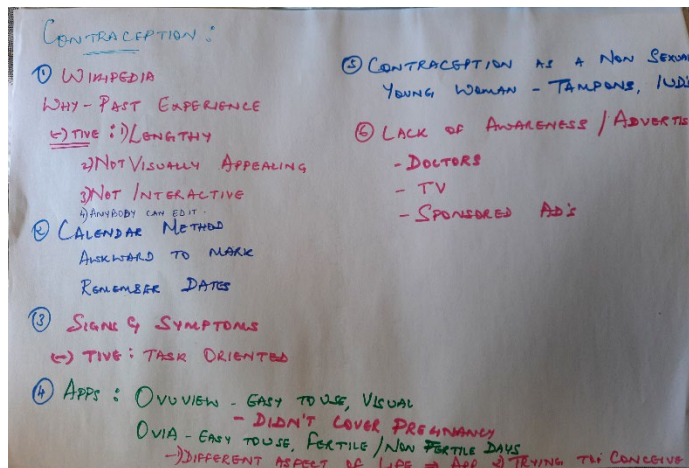 CONTRACEPTION :
① WIKIPEDIA
WHY - PAST EXPERIENCE
(-) TIVE : 1) LENGTHY
2) NOT VISUALLY APPEALING
3) NOT INTERACTIVE
4) ANYBODY CAN EDIT.
② CALENDAR METHOD
AWKWARD TO MARK
REMEMBER DATES
③ SIGNS & SYMPTOMS
(-) TIVE : TASK ORIENTED
④ APPS : OVUVIEW - EASY TO USE, VISUAL
- DIDN'T COVER PREGNANCY
OVIA - EASY TO USE, FERTILE / NON FERTILE DAYS
-1) DIFFERENT ASPECT OF LIFE → APP 2) TRYING TO CONCEIVE
⑤ CONTRACEPTION AS A NON SEXUA
YOUNG WOMAN - TAMPONS, IUD'S
⑥ LACK OF AWARENESS / ADVERTIS
- DOCTORS
- TV
- SPONSORED AD'S